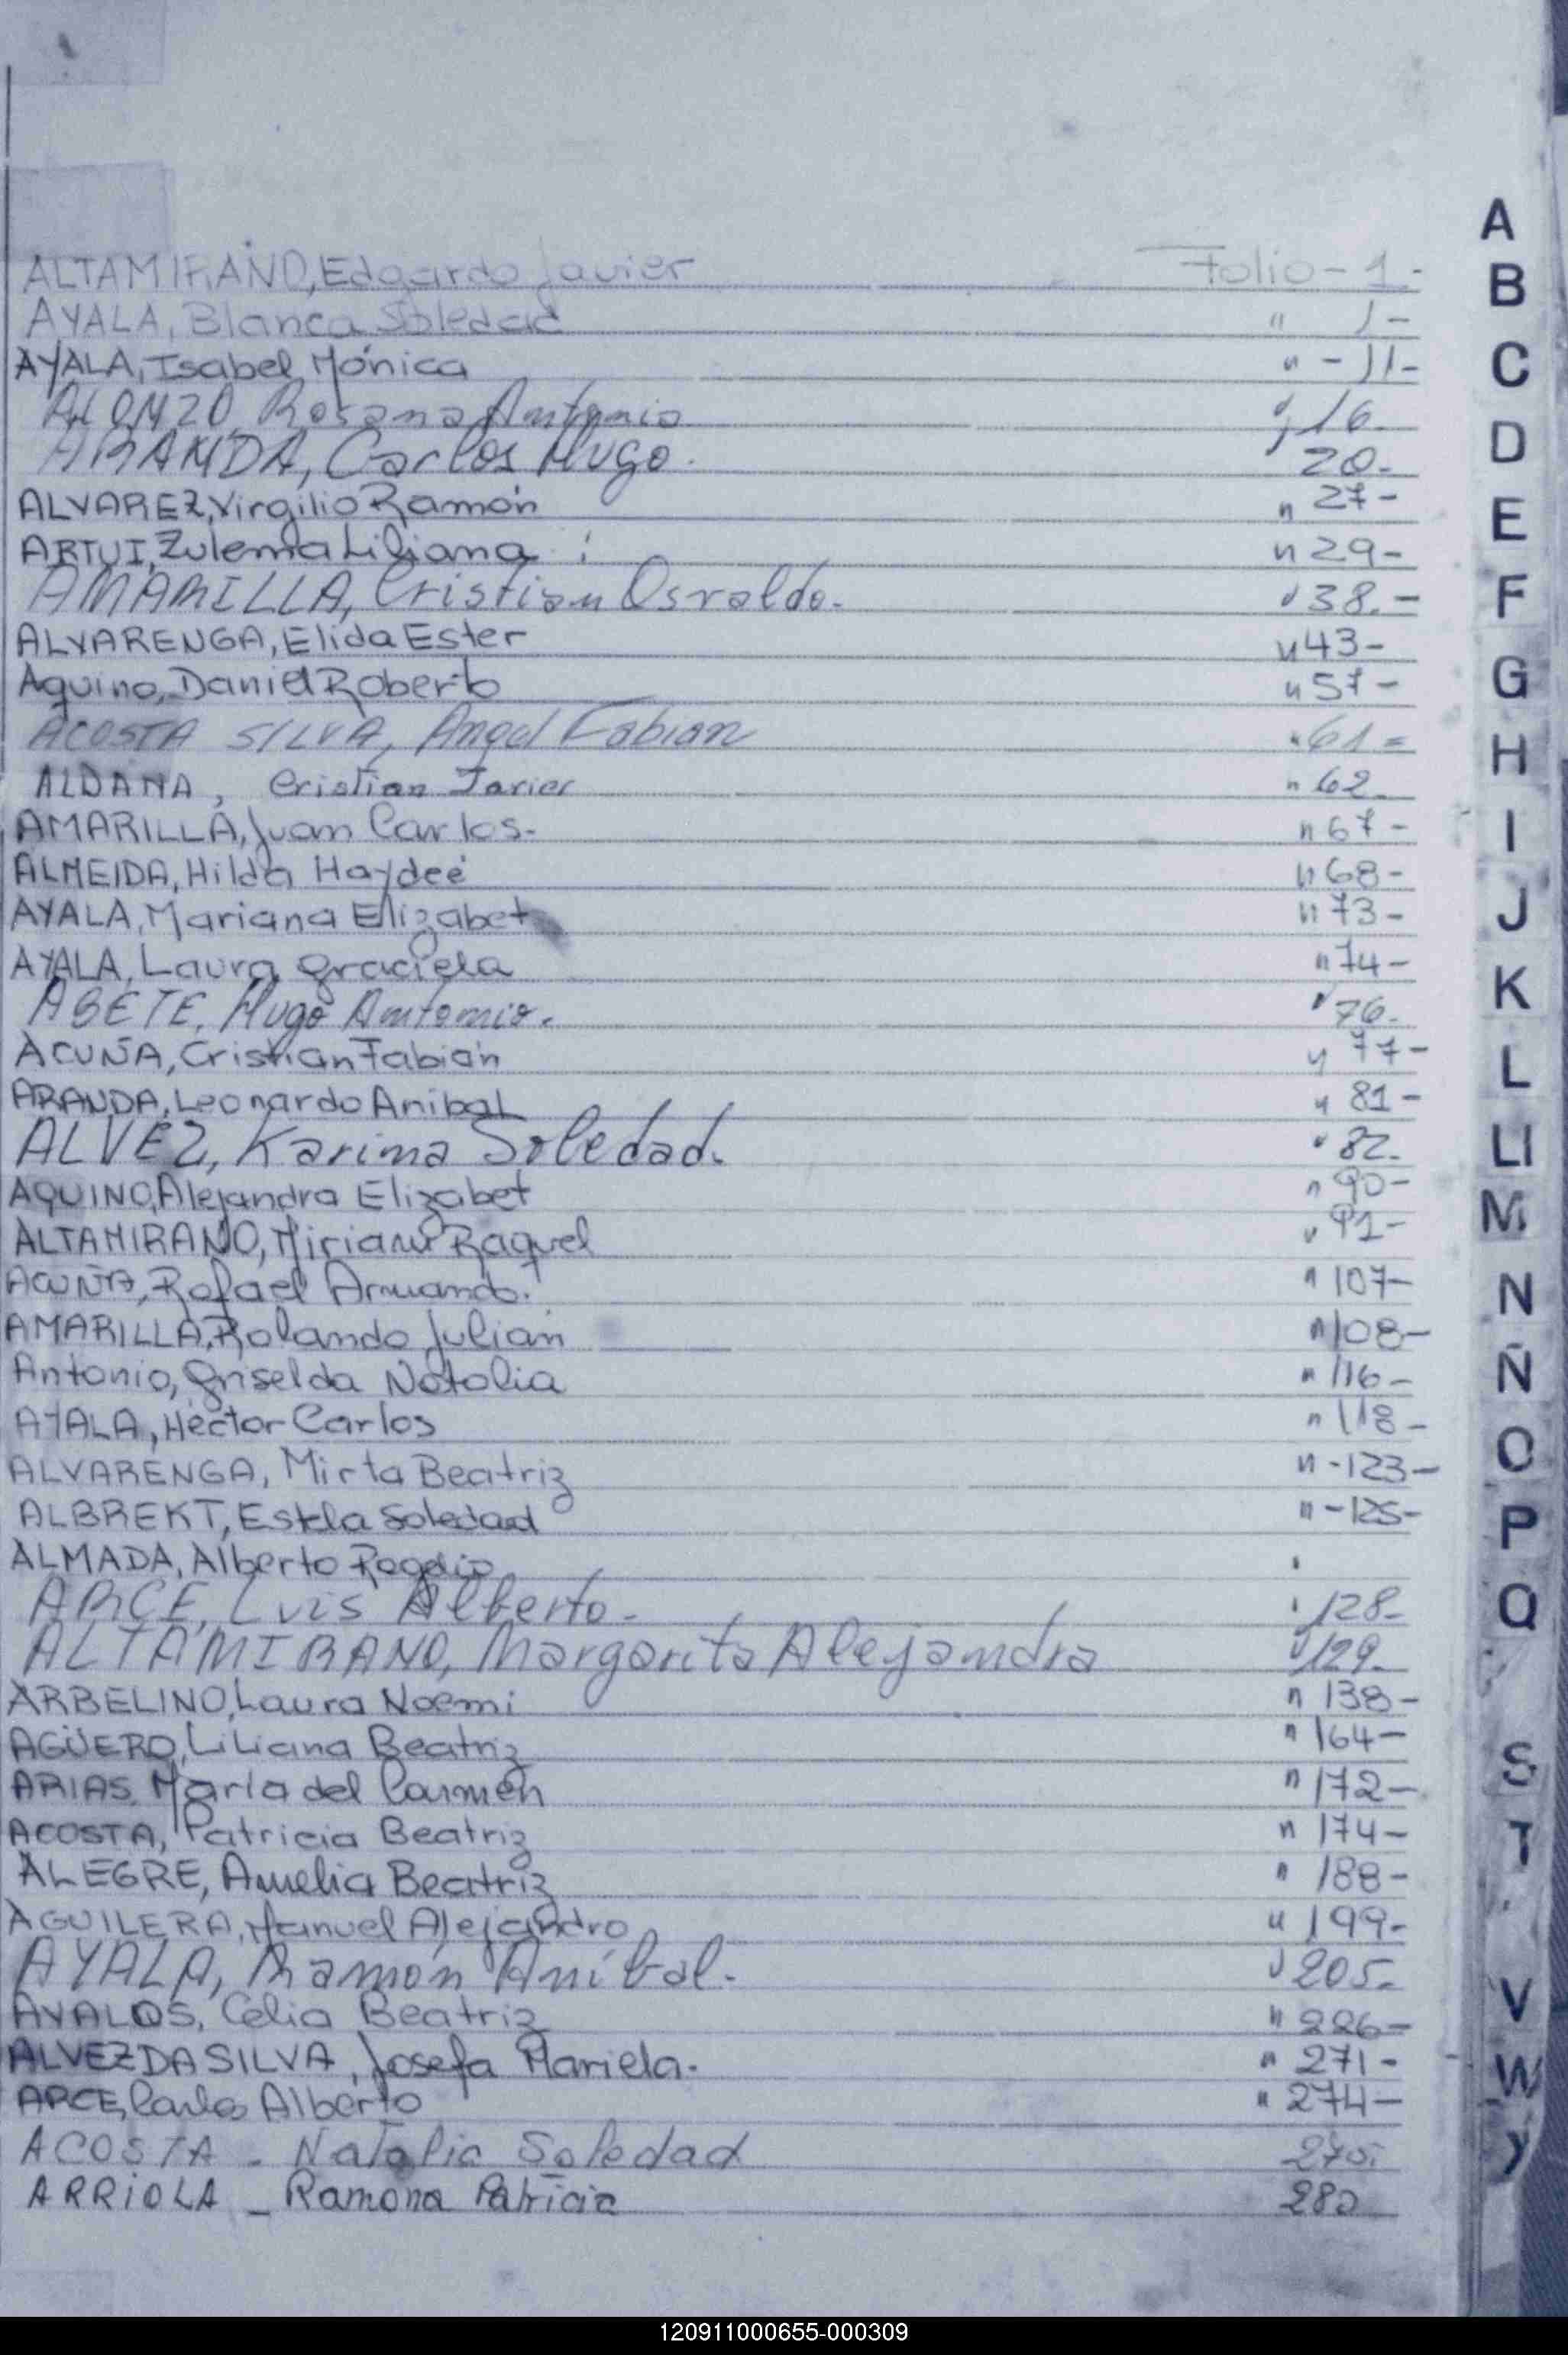 ALTAMIRANO, Edgardo Javier Folio - 1.-
AYALA, Blanca Soledad " 1-
AYALA, Isabel Mónica " - 11-
ALONZO, Rosana Antonia " 16.
ARANDA, Carlos Hugo. " 20.-
ALVAREZ, Virgilio Ramón " 27-
ARTUI, Zulema Liliana " 29-
AMARILLA, Cristian Osvaldo.- " 38.-
ALVARENGA, Elida Ester " 43-
Aquino, Daniel Roberto " 57-
ACOSTA SILVA, Angel Fabian " 61=
ALDANA, Cristian Javier " 62.
AMARILLA, Juan Carlos.- " 67-
ALMEIDA, Hilda Haydeé " 68-
AYALA, Mariana Elizabet " 73-
AYALA, Laura Graciela " 74-
ABETE, Hugo Antonio. " 76.
ACUÑA, Cristian Fabián " 77-
ARANDA, Leonardo Anibal " 81-
ALVEZ, Karina Soledad. " 82.
AQUINO, Alejandra Elizabet " 90-
ALTAMIRANO, Miriam Raquel " 91-
ACUÑA, Rafael Armando. " 107-
AMARILLA, Rolando Julián " 108-
Antonio, Griselda Natalia " 116-
AYALA, Héctor Carlos " 118-
ALVARENGA, Mirta Beatriz " -123-
ALBREKT, Estela Soledad " -125-
ALMADA, Alberto Rogelio
ARCE, Luis Alberto.- " 128-
ALTAMIRANO, Margarita Alejandra " 129.
ARBELINO, Laura Noemi " 138-
AGÜERO, Liliana Beatriz " 164-
ARIAS, María del Carmen " 172-
ACOSTA, Patricia Beatriz " 174-
ALEGRE, Amelia Beatriz " 188-
AGUILERA, Manuel Alejandro " 199-
AYALA, Ramón Aníbal.- " 205.
AYALOS, Celia Beatriz " 226-
ALVEZ DA SILVA, Josefa Mariela.- " 271-
ARCE, Carlos Alberto " 274-
ACOSTA - Natalia Soledad 275.
ARRIOLA - Ramona Patricia 280
A
B
C
D
E
F
G
H
I
J
K
L
Ll
M
N
Ñ
O
P
Q
S
T
V
W
Y
120911000655-000309